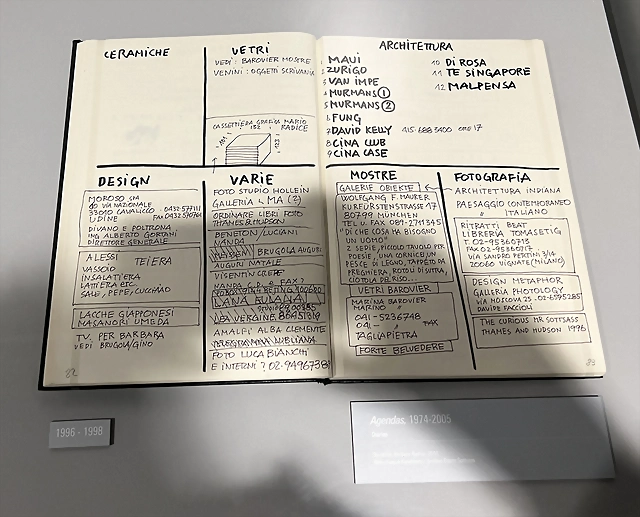 CERAMICHE
VETRI
VEDI: BAROVIER MOSTRE
VENINI: OGGETTI SCRIVANIA
CASSETTIERA GRAFICA MARIO
RADICE
132
ARCHITETTURA
MAUI
2 ZURIGO
3 VAN IMPE
4 MURMANS 1
5 MURMANS 2
6 FUNG
7 DAVID KELLY 415-688 3400 ORE 17
8 CINA CLUB
9 CINA CASE
10 DI ROSA
11 TE SINGAPORE
12 MALPENSA
DESIGN
MOROSO SPA
60 VIA NAZIONALE
33010 CAVALICCO 0432-577111
UDINE FAX 0432 570761
DIVANO E POLTRONA
ING ALBERTO GORTANI
DIRETTORE GENERALE
ALESSI TEIERA
VASSOIO
INSALATIERA
LATTIERA ETC.
SALE, PEPE, CUCCHIAIO
LACCHE GIAPPONESI
MASANORI UMEDA
TV. PER BARBARA
VEDI BRUGOLA/GINO
22
VARIE
FOTO STUDIO HOLLEIN
GALLERIA 4 MA (2)
ORDINARE LIBRI FOTO
THAMES & HUDSON
BENETON/LUCIANI
NANDA
BRUGOLA AUGURI
AUGURI NATALE
VISENTIN
LANA
AMALPI ALBA CLEMENTE
FOTO LUCA BIANCHI
E INTERNI? 02-9496738
MOSTRE
GALLERIE OBIEKTE
WOLFGANG F. MAURER
KURFÜRSTENSTRASSE 17
80799 MÜNCHEN
TEL u. FAX 089-2711345
"DI CHE COSA HA BISOGNO
UN UOMO"
2 SEDIE, PICCOLO TAVOLO PER
POESIE, UNA CORNICE, UN
PESCE DI LEGNO, TAPPETO DA
PREGHIERA, ROTOLI DI SUTRA,
CIOTOLA DEL RISO...
VETRI BAROVIER
MARINA BAROVIER
MARINO
041-5236748
041- FAX
TAGLIAPIETRA
FORTE BELVEDERE
FOTOGRAFIA
ARCHITETTURA INDIANA
PAESAGGIO CONTEMPORANEO
" ITALIANO
RITRATTI BEAT
LIBRERIA TOMASETIG
T. 02-95360713
VIA SANDRO PERTINI 3/14
20060 VIGNATE (MILANO)
DESIGN METAPHOR,
GALLERIA PHOTOLOGY
VIA MOSCOVA 25 - 02-6595285
DAVIDE FACCIOLI
THE CURIOUS MR SOTTSASS
THAMES AND HUDSON 1996
23
1996 - 1998
Agendas, 1974-2005